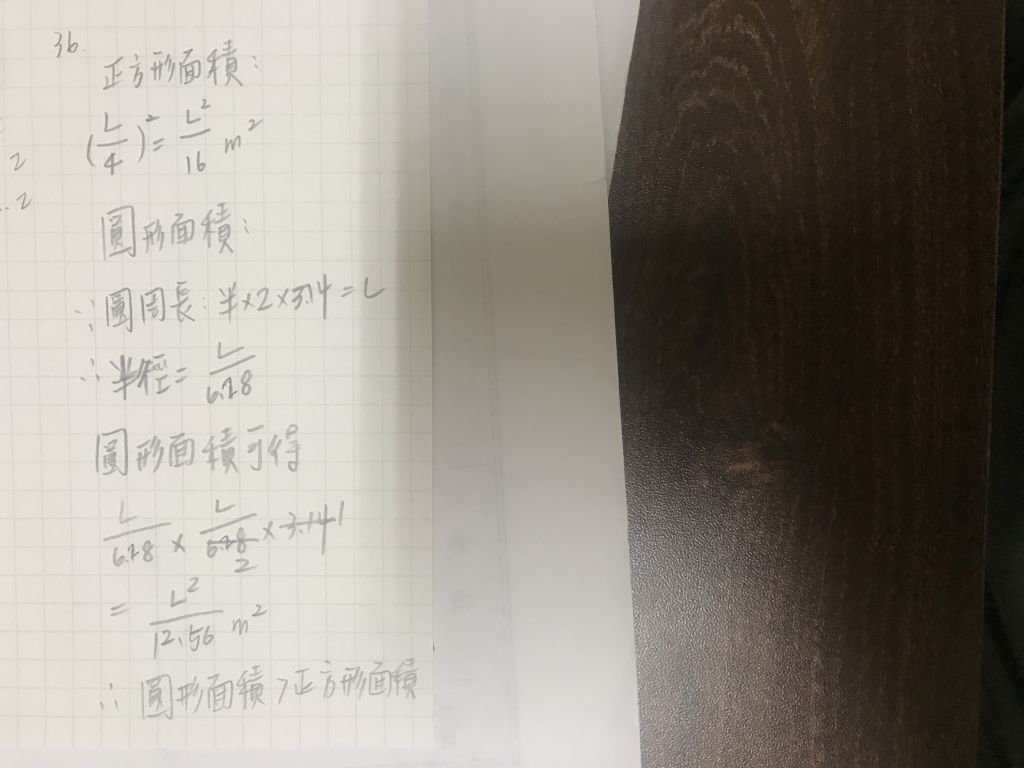 36.
正方形面積:
(L/4)² = L²/16 m²
圓形面積:
∵圓周長:半×2×3.14=L
∴半徑= L/6.28
圓形面積可得
L/6.28 × L/6.28 2 × 3.14 1
= L²/12.56 m²
∴ 圓形面積>正方形面積
2
2